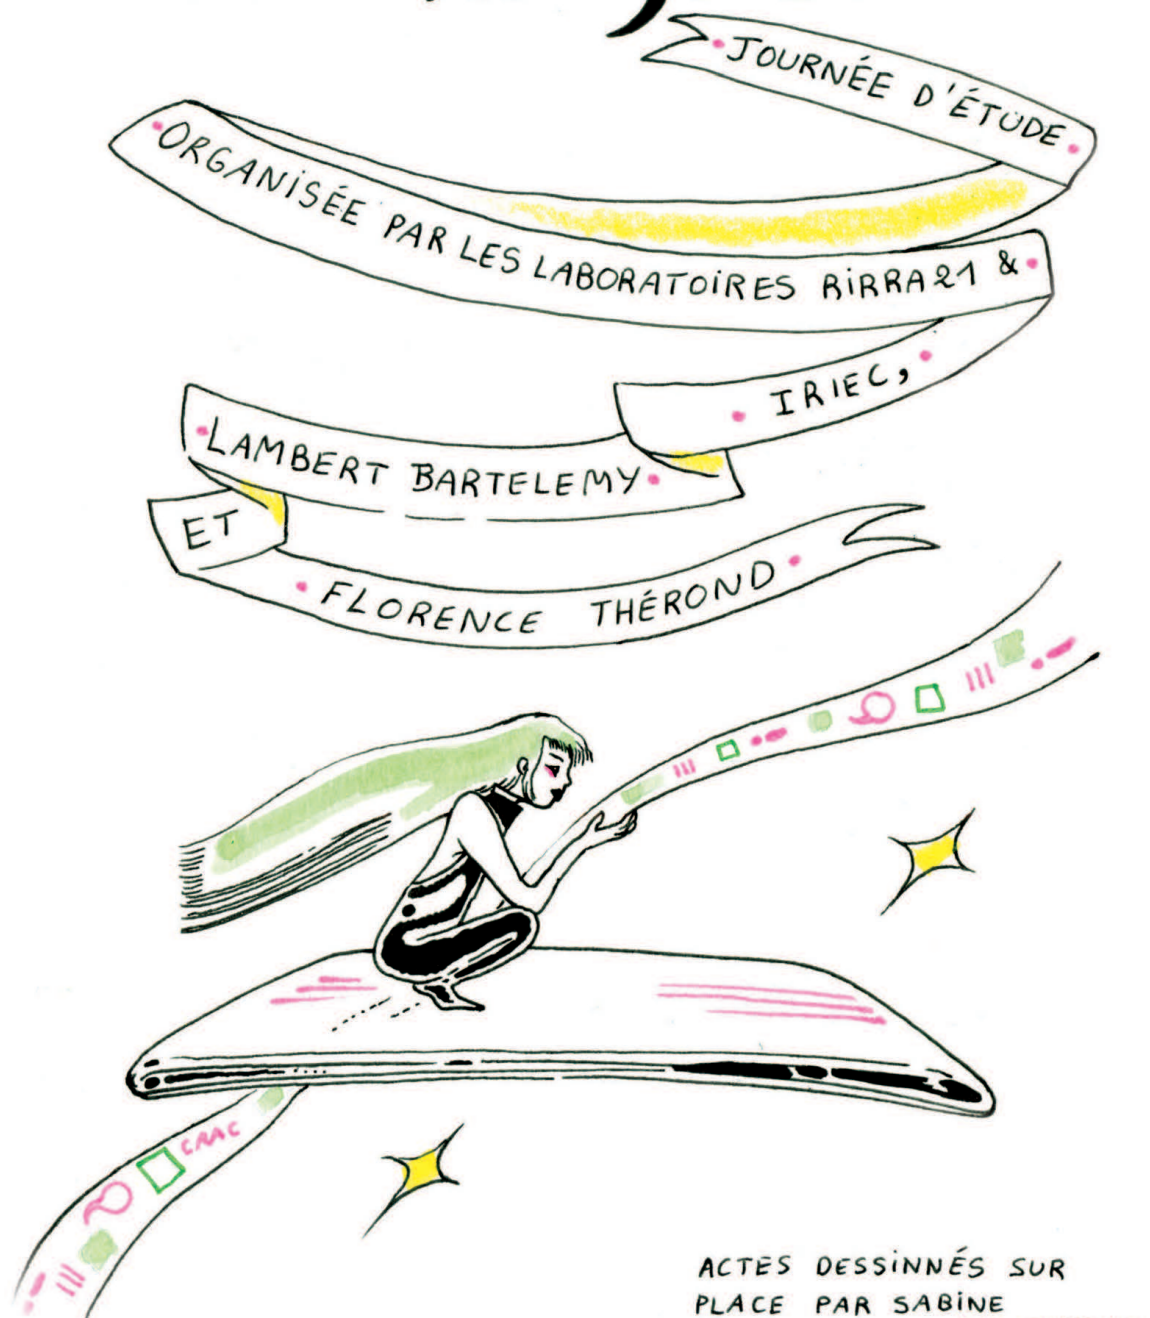 JOURNÉE D'ÉTUDE
ORGANISÉE PAR LES LABORATOIRES RIRRA21 &
IRIEC,
LAMBERT BARTELEMY
ET
FLORENCE THÉROND
CRAC
ACTES DESSINNÉS SUR
PLACE PAR SABINE